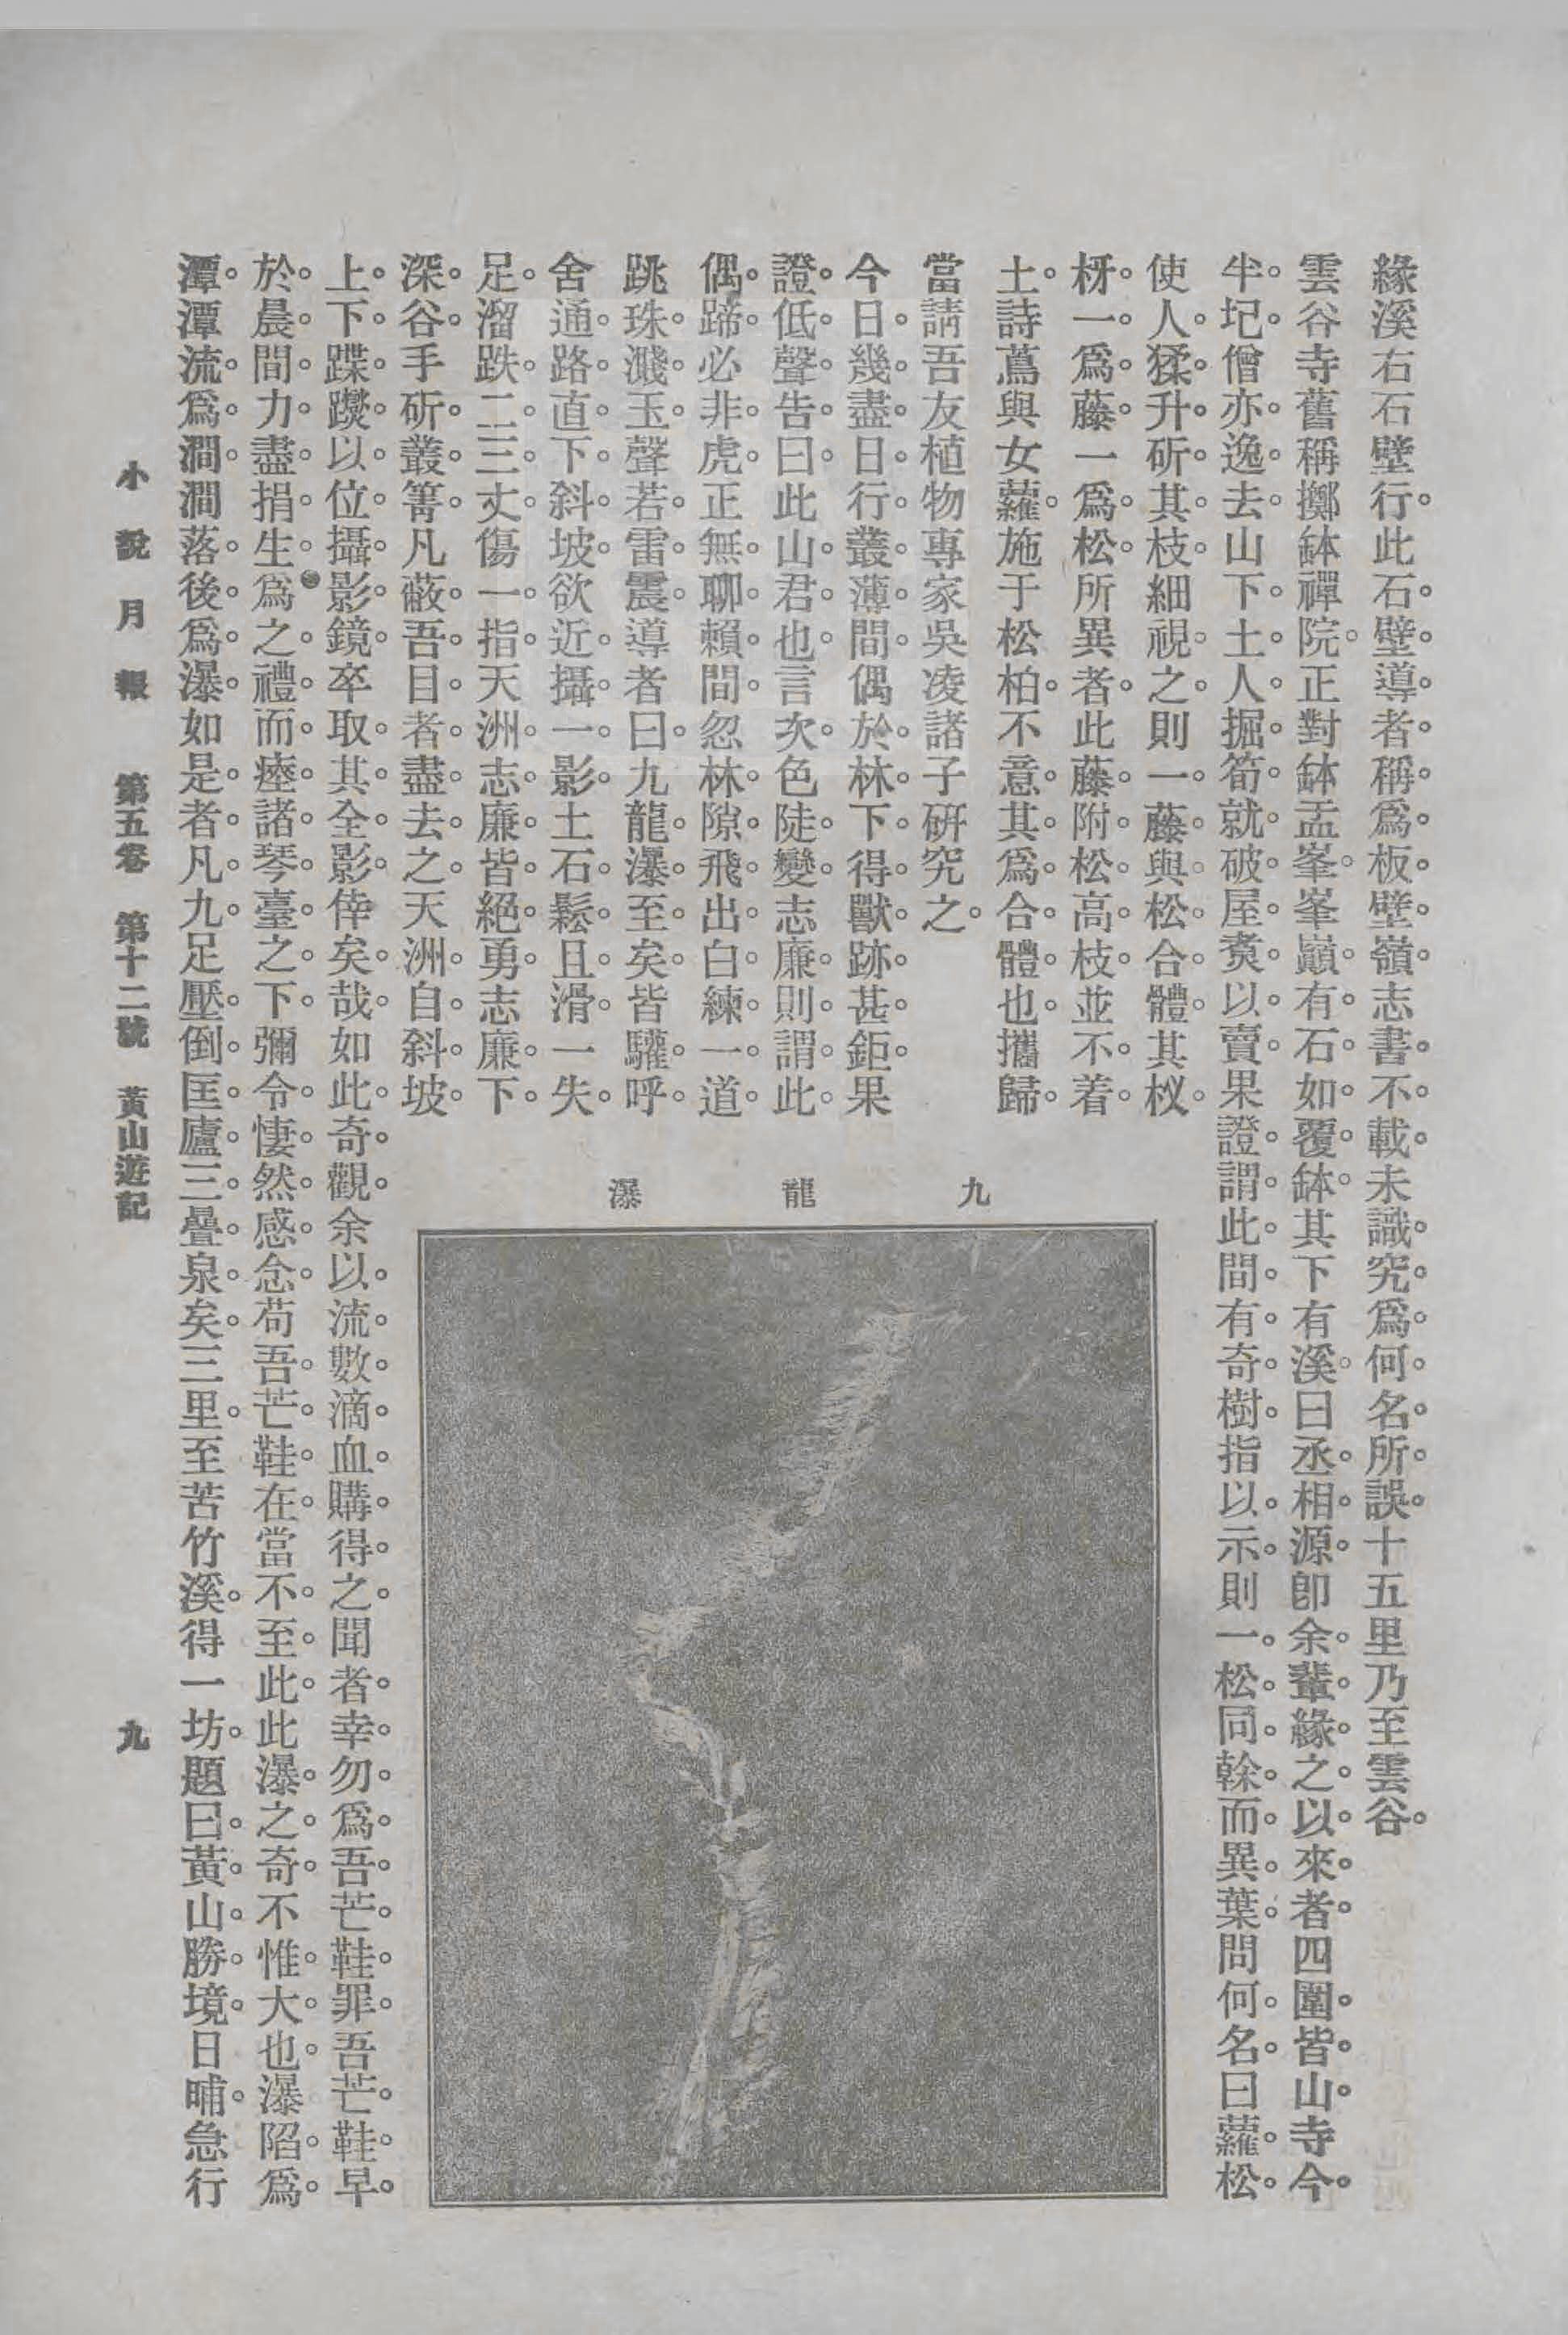 緣溪右石壁行。此石。壁。導者。稱爲。板壁。嶺。志書。不。載。未識。究。爲。何。名。所。誤。十五里乃至雲谷。
雲谷寺舊稱擲鉢禪院。正對鉢盂峯。峯巓。有。石。如。覆。鉢。其下有溪。曰丞。相。源。卽余。輩。緣。之。以。來。者。四圍。皆。山。寺今。
半。圮。僧亦。逸。去。山下。土。人。掘。筍。就。破。屋。煑以。賣。果證。謂。此。間。有。奇。樹。指以。示。則一。松。同。榦。而。異。葉。問何。名。曰蘿。松。
使人。猱。升。斫。其。枝。細視。之。則一。藤。與。松。合。體。其杈。
枒。一。爲。藤。一爲。松。所異者。此藤。附。松。高。枝。並不。着。
土。詩蔦與女蘿。施于松柏。不意。其。爲。合。體。也。攜歸。
當請吾友植物專家吳凌諸子硏究之。
今日。幾。盡。日。行。叢。薄。間。偶於。林。下。得。獸。跡。甚。鉅。果
證。低。聲。告。曰。此山。君。也。言次。色陡。變。志廉。則。謂。此。
偶。蹄。必非。虎。正無。聊。賴。間。忽林。隙。飛。出。白。練。一。道。
跳珠。濺。玉。聲若。雷。震。導者曰。九龍。瀑。至。矣。皆驩。呼。
舍通。路。直。下。斜。坡。欲近。攝。一。影。土石。鬆。且。滑。一失。
足。溜跌。二。三。丈。傷一。指。天洲。志。廉。皆。絕。勇。志廉。下。
深。谷。手斫。叢。箐。凡蔽。吾。目。者。盡。去。之。天洲。自。斜。坡。
上。下。蹀。躞。以位。攝。影。鏡。卒取。其。全。影。倖矣。哉。如此。奇。觀。余以。流。數。滴。血。購。得。之。聞者。幸。勿。爲。吾。芒。鞋。罪。吾芒。鞋。早。
於。晨。間。力。盡。捐。生。爲之。禮。而。瘞。諸。琴。臺。之。下。彌令。悽。然。感。念。苟吾。芒。鞋。在。當不。至。此。此瀑。之。奇。不惟。大。也。瀑陷。爲。
潭。潭流。爲。澗。澗落。後。爲。瀑。如是。者。凡。九。足壓。倒。匡。廬。三。疊。泉。矣。三里。至苦竹溪。得一坊。題曰。黃。山。勝。境。日晡。急行
九龍瀑
小說月報 第五卷 第十二號 黃山遊記 九